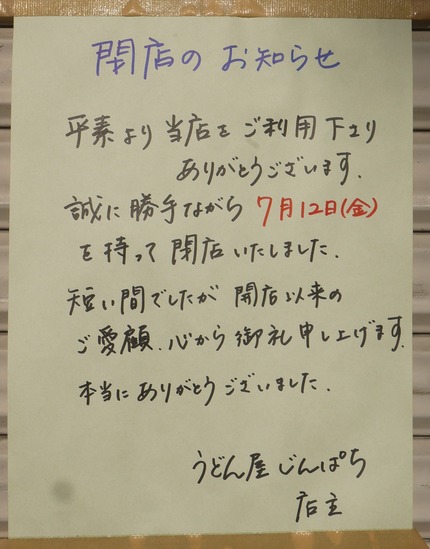 閉店のお知らせ
平素より当店をご利用下さり
ありがとうございます.
誠に勝手ながら 7月12日(金)
を持って閉店いたしました.
短い間でしたが 開店以来の
ご愛顧、心から御礼申し上げます.
本当にありがとうございました.
うどん屋 じんぱち
店主